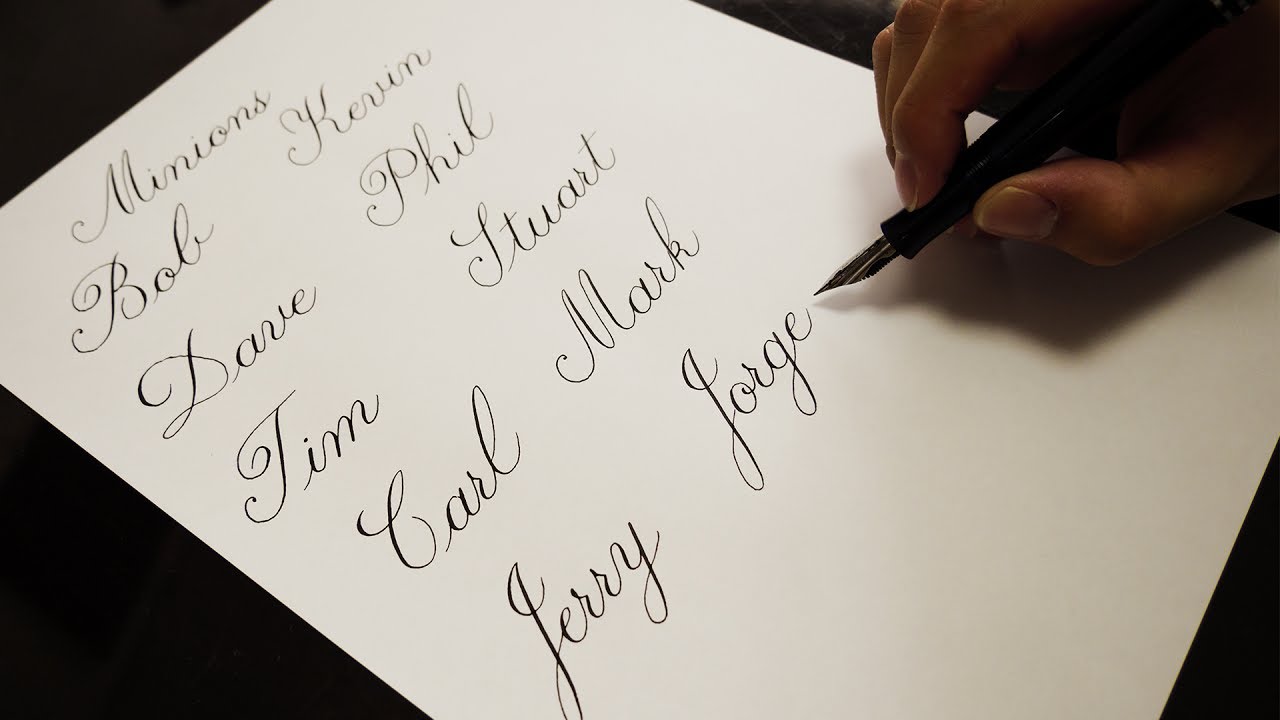 Minions
Bob Kevin
Dave Phil
Tim Stuart
Carl Mark
Jerry Jorge